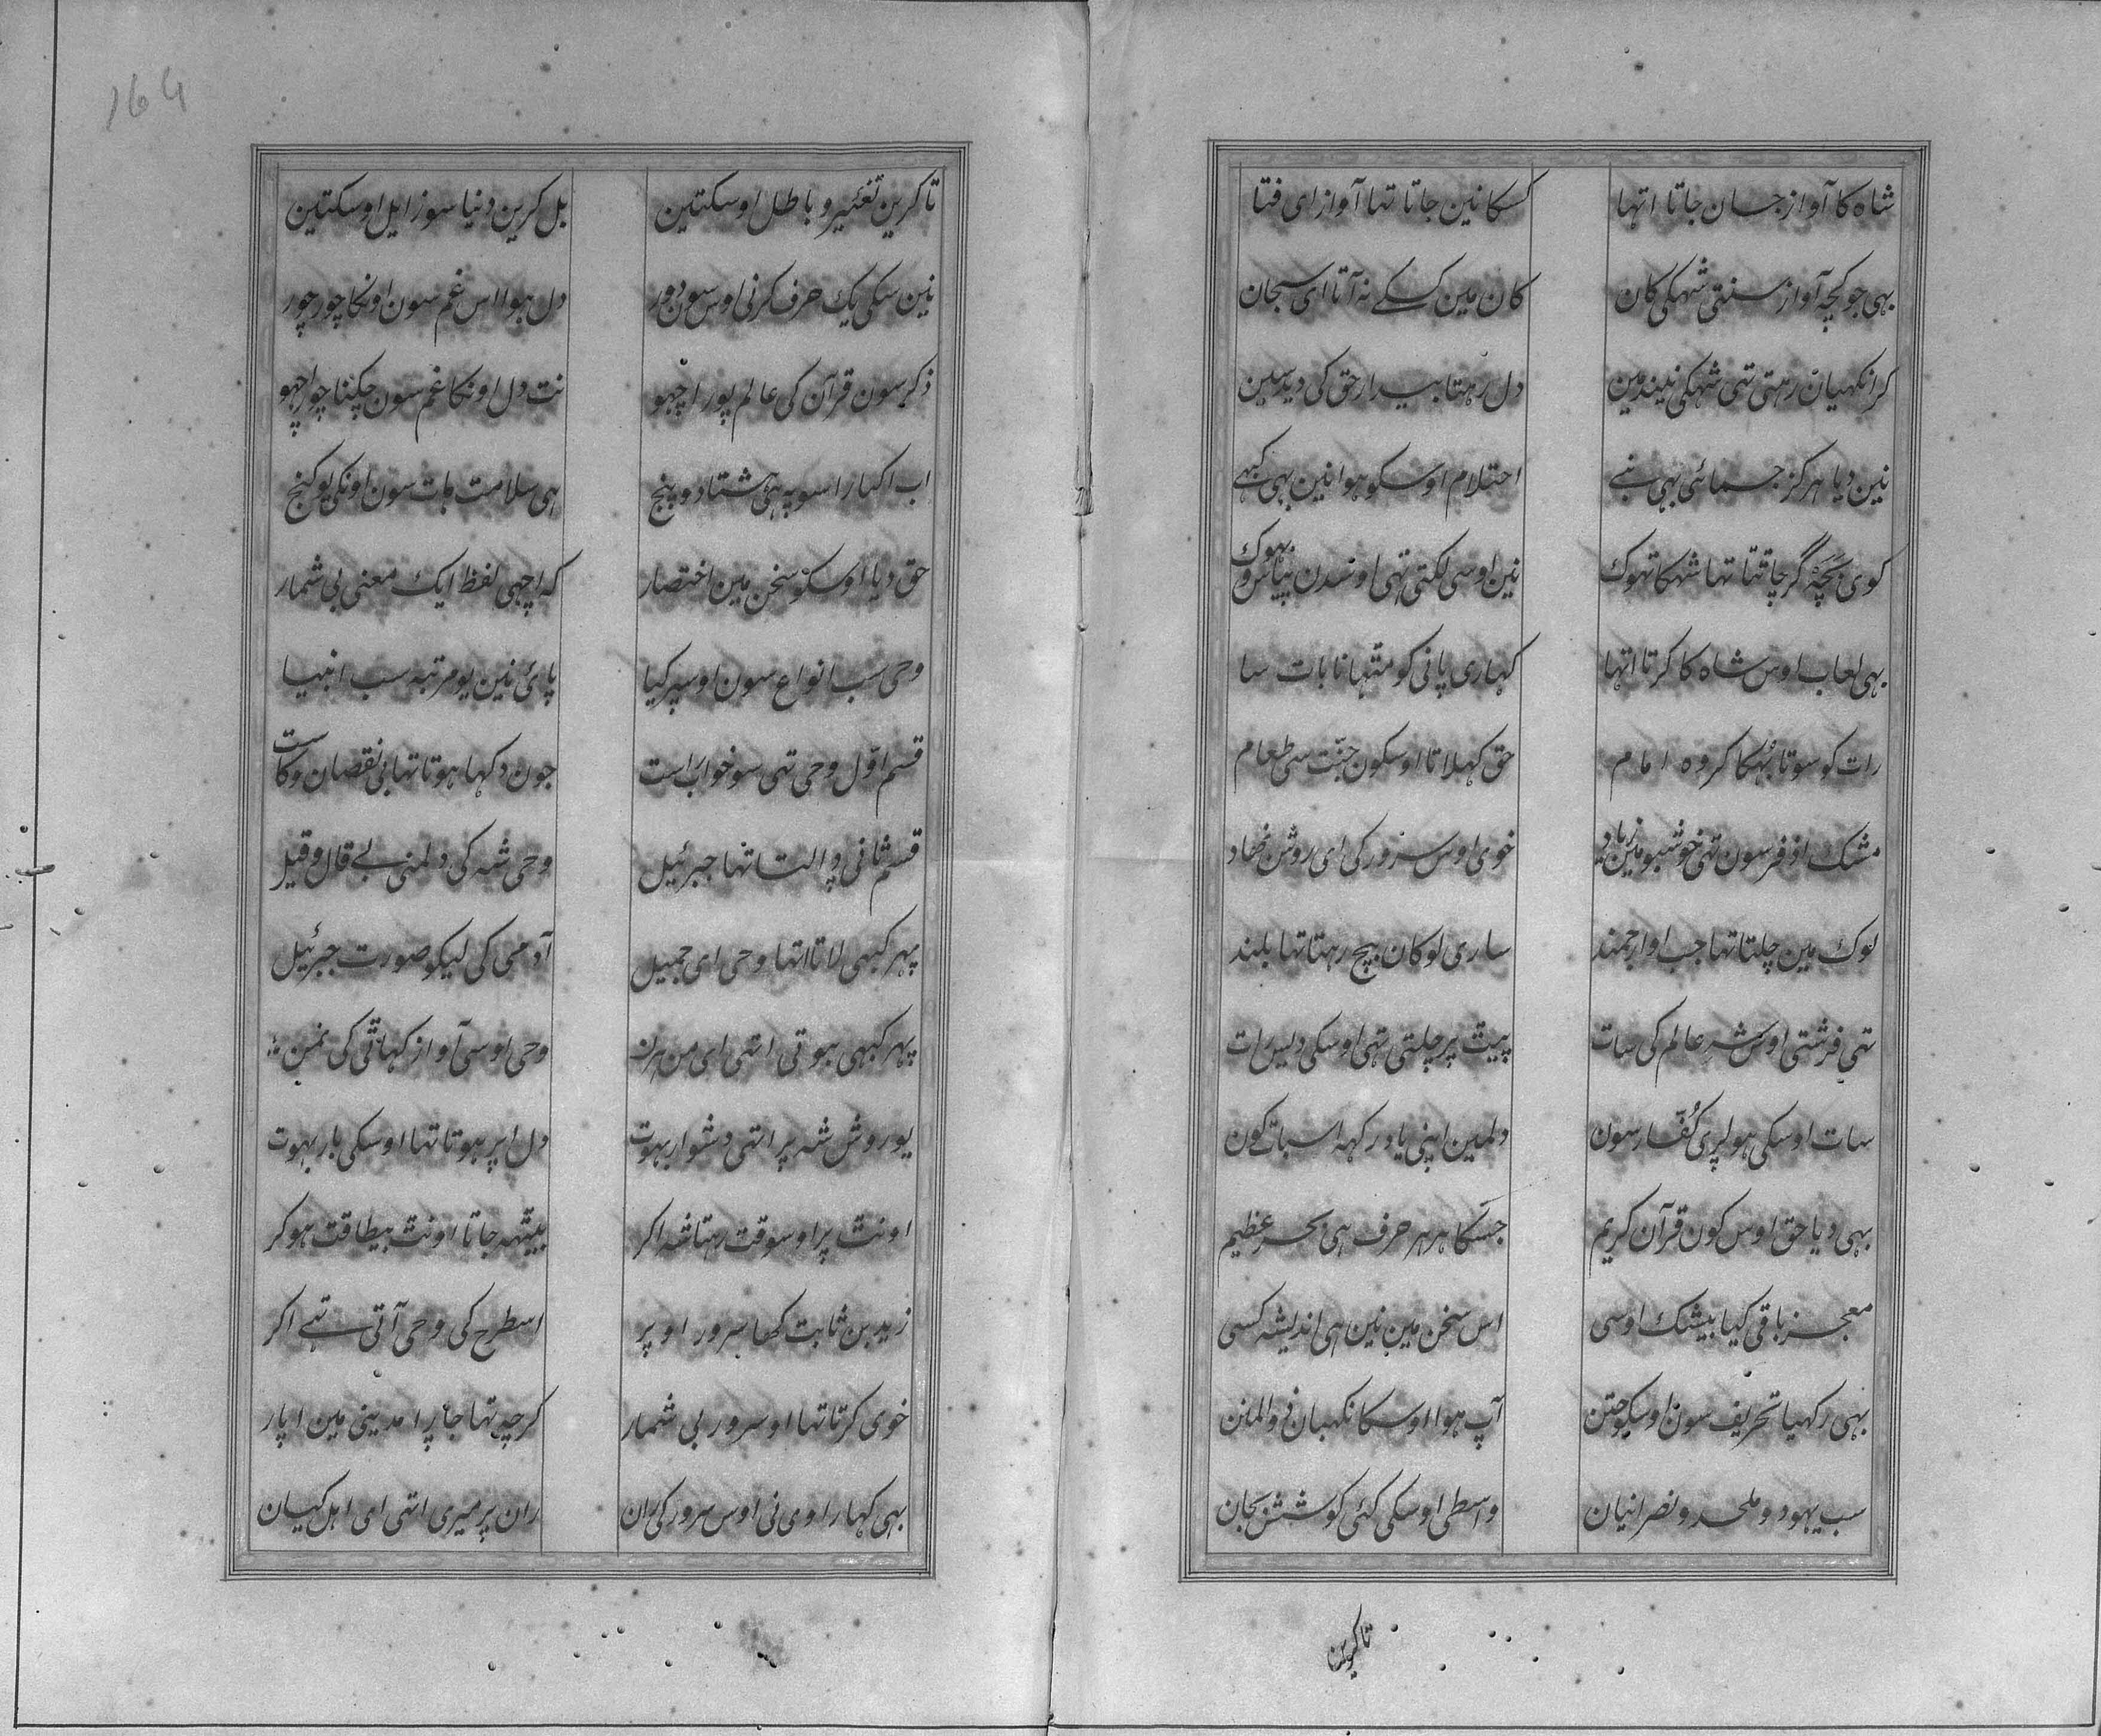 شاه کا آواز جسان جاتا اتها کسکا نین جاتا تها آواز ای فتا
بهی جو کچه آواز سنتی شهکی کان کان مین کسکے نه آتا ای سبحان
کر انکهیان رهتی تهی شهکی نیند مین دل رهتا بیدار حق کی دید مین
نین دیا هرکز جمائی بهی نبے احتلام اوسکو هوا نین بهی کبهے
کوی بچه گر چاقتا تها شهکا تهوک نین اوسی لکتی تهی اوسدن پیاس و بهوک
بهی لعاب اوس شاه کا کرتا اتها کهاری پانی کو متهانا بات سا
رات کو سوتا بهکا کر وه امام حق کهلاتا اوسکون جنت سی طعام
مشک اذفر سون تهی خوشبو مین زیاد خوی اوس سرور کی ای روشن نهاد
لوک مین چلتا تها جب او ارجمند ساری لوکان بیچ رهتا تها بلند
تهی فرشتی اوس شه عالم کی سات پیت پر چلتی تهی اوسکی دیس رات
سات اوسکی هو لری کفار سون دلمین اپنی یاد رکهه اس بات کون
بهی دیا حق اوس کون قرآن کریم جسکا هر هر حرف هی بحر عظیم
معجز باقی کیا بیشک اوسی اس سخن مین نین هی اندیشه کسی
بهی رکهیا تحریف سون اوسکو جتن آپ هوا اوسکا نکهبان ذو المنن
سب یهود و ملحد و نصرانیان واسطی اوسکی کئی کوشش بجان
تاکرین
تا کرین تغئیر و باطل اوسکتین بل کرین دنیا سو زایل اوسکتین
نین سکی یک حرف کرنی اوس سون دور دل هوا اس غم سون اونکا چور چور
ذکر سون قرآن کی عالم پور اچهو نت دل اونکا غم سون چکنا چور اچهو
اب اکیارا سو په هی هشتاد و پنج هی سلامت بات سون اونکی یو کنج
حق دیا اوسکو سخن مین اختصار که اچهی لفظ ایک معنی بی شمار
وحی سب انواع سون اوسپر کیا پائ نین یو مرتبه سب انبیا
قسم اول وحی تهی سو خواب راست جون دکها هوتا تها بی نقصان و کاست
قسم ثانی والتا تها جبرئیل وحی شه کی دلمنی بے قال و قیل
پهر کبهی لاتا اتها وحی ای جمیل آدمی کی لیکو صورت جبرئیل
پهر کبهی هوتی اتهی ای من هرن وحی اوسی آواز کهانتی کی نمن
یو روش شه پر اتهی دشوار بهوت دل اپر هوتا تها اوسکی بار بهوت
اونٹ پر اوسوقت رهتا شه اکر بیتهه جاتا اونٹ بیطاقت هو کر
زید بن ثابت کها سرور اوپر اسطرح کی وحی آتی تهے اکر
خوی کرتا تها او سرور بی شمار کرچه تها جارا مدینی مین اپار
بهی کها راوی نی اوس سرور کی ران ران پر میری اتهی ای اهل کیان